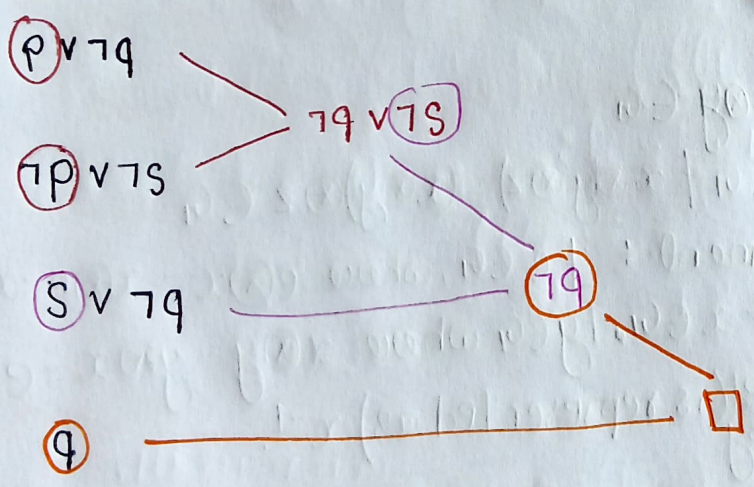 p ∨ ¬q
¬q ∨ ¬s
¬p ∨ ¬s
s ∨ ¬q
¬q
q